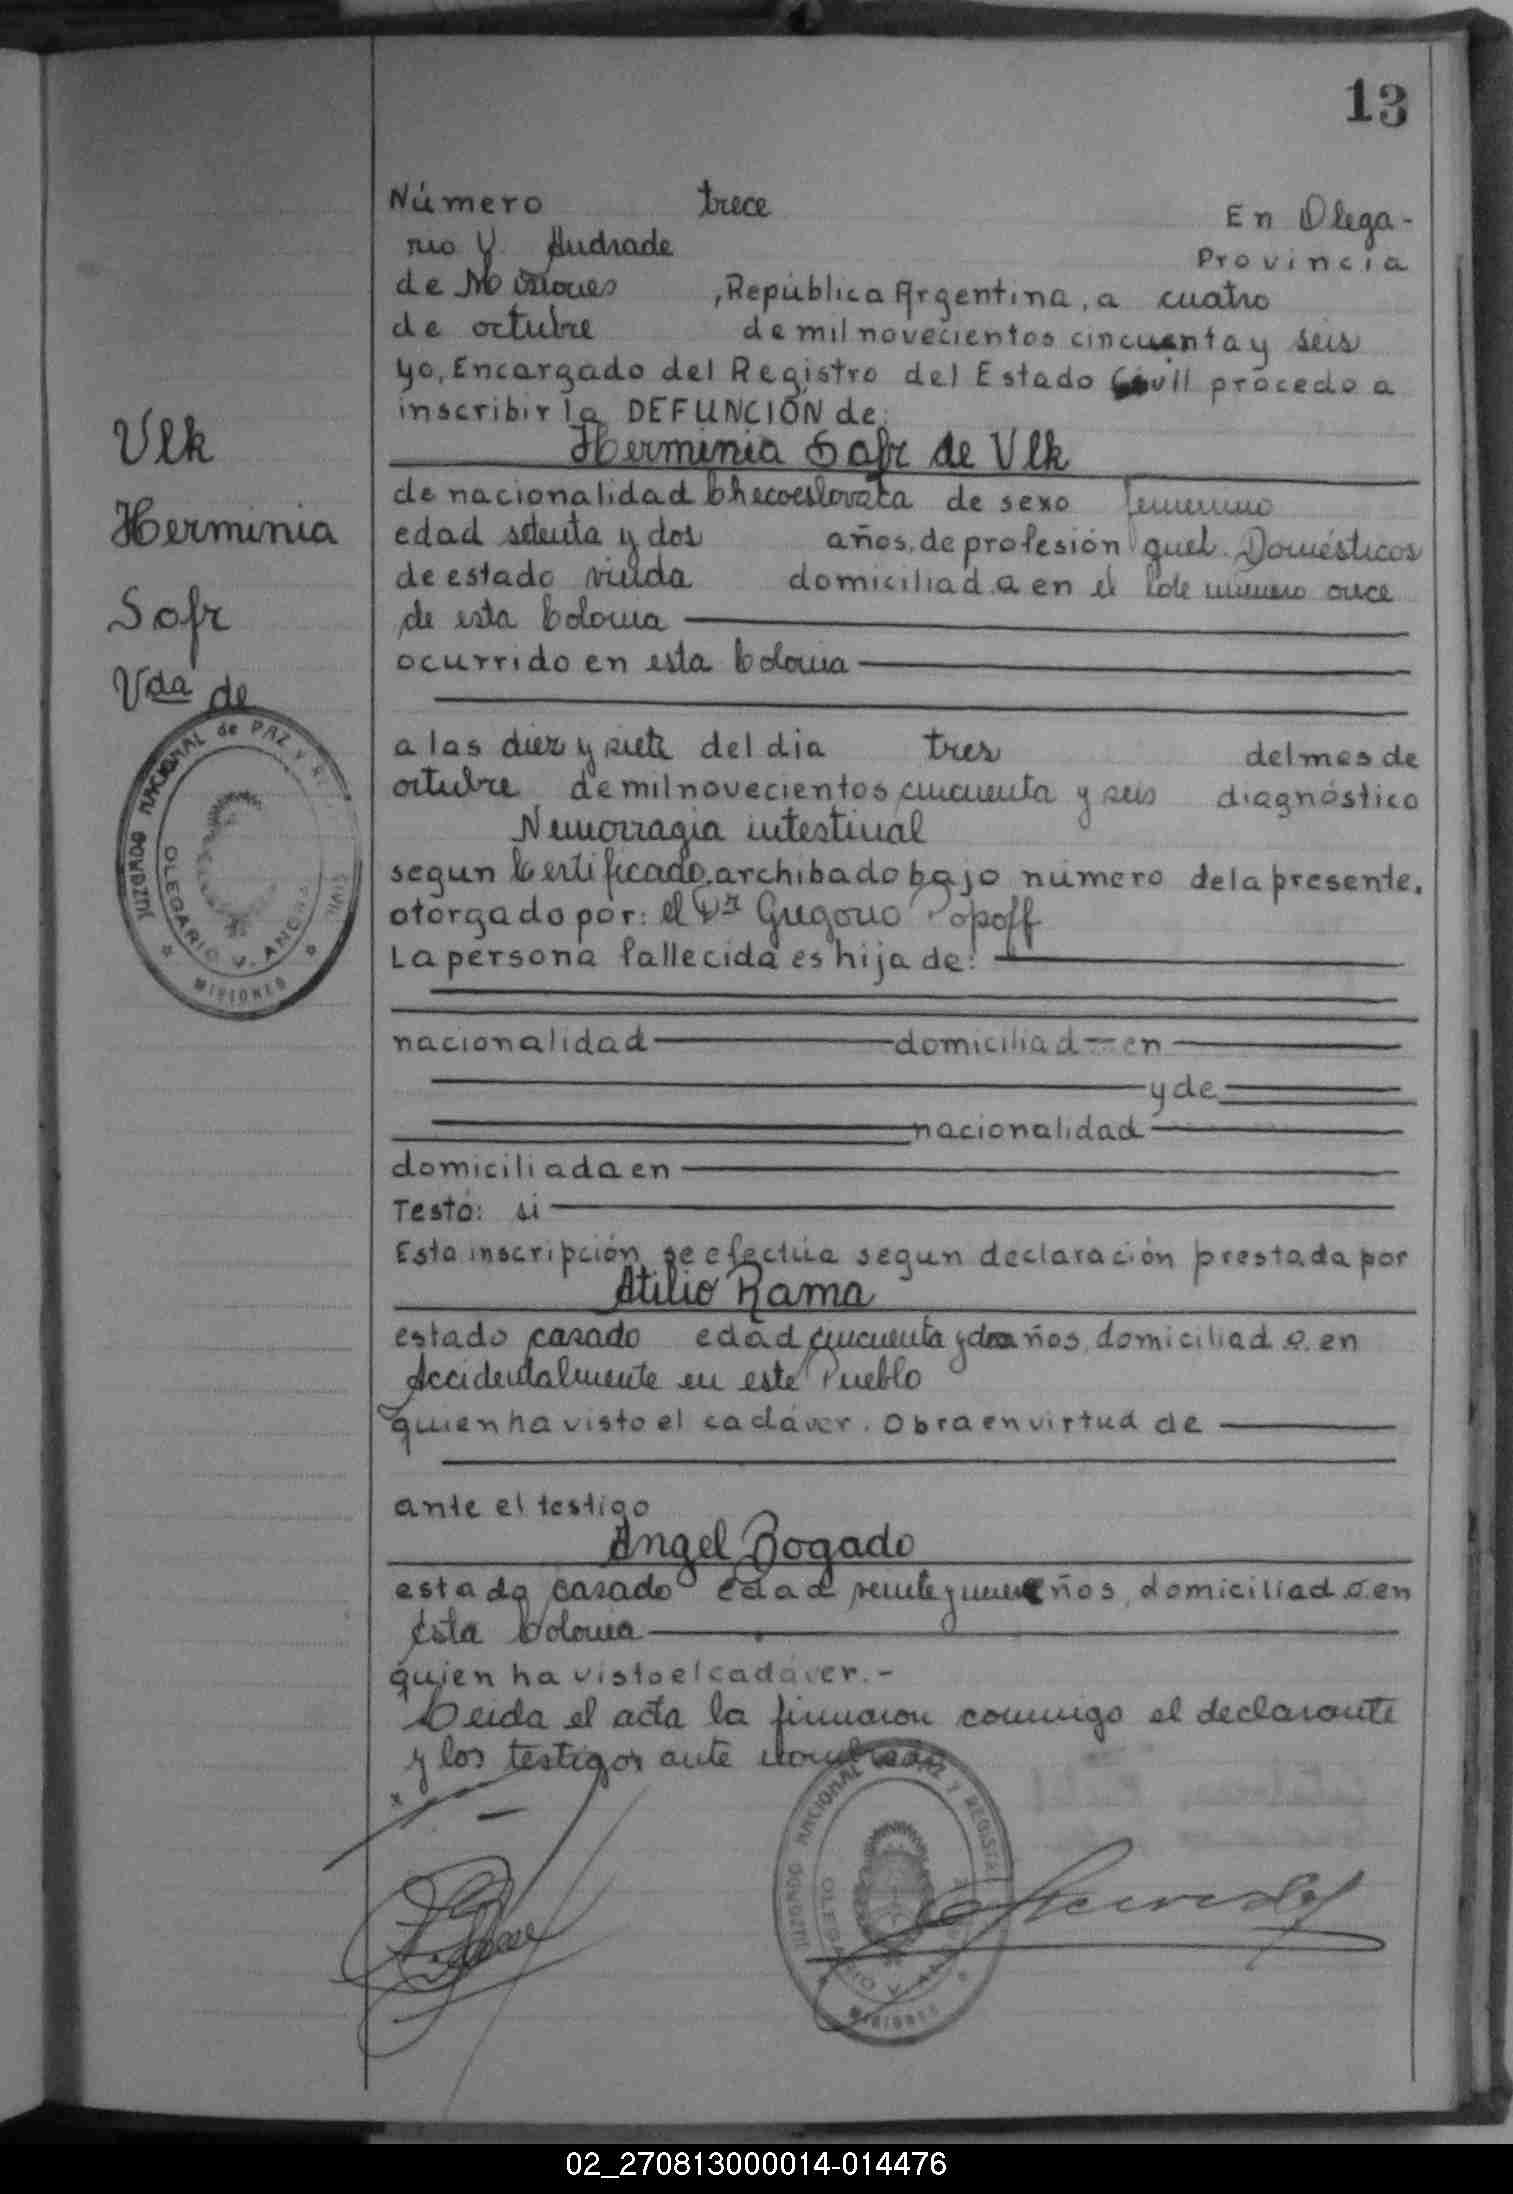 13
Número trece En Olega-
rio V. Andrade Provincia
de Misiones , República Argentina, a cuatro
de octubre de mil novecientos cincuenta y seis
yo, Encargado del Registro del Estado Civil procedo a
inscribir la DEFUNCIÓN de:
Herminia Safr de Vlk
de nacionalidad Checoeslovaca de sexo femenino
edad setenta y dos años, de profesión quel. Domésticos
de estado viuda domiciliad a en el lote número once
de esta Colonia
ocurrido en esta Colonia
a las diez y siete del dia tres del mes de
octubre de mil novecientos cincuenta y seis diagnóstico
Hemorragia intestinal
segun Certificado, archibado bajo número de la presente.
otorgado por: el Dr Gregorio Popoff
La persona fallecida es hija de:
nacionalidad domiciliad en
y de
nacionalidad
domiciliada en
Testó: si
Esta inscripción se efectúa segun declaración prestada por
Atilio Rama
estado casado edad cincuenta y dos años, domiciliad o en
Accidentalmente en este Pueblo
quien ha visto el cadáver. Obra en virtud de
ante el testigo
Angel Bogado
estado casado edad veinte y nueve años, domiciliad o en
esta Colonia
quien ha visto el cadáver.-
Leida el acta la firmaron conmigo el declarante
y los testigos ante nombrados
Vlk
Herminia
Safr
Vda de
JUZGADO NACIONAL de PAZ y R. CIVIL
OLEGARIO V. ANDRADE
MISIONES
JUZGADO NACIONAL de PAZ y REGISTRO
OLEGARIO V. AN
MISIONES
02_270813000014-014476